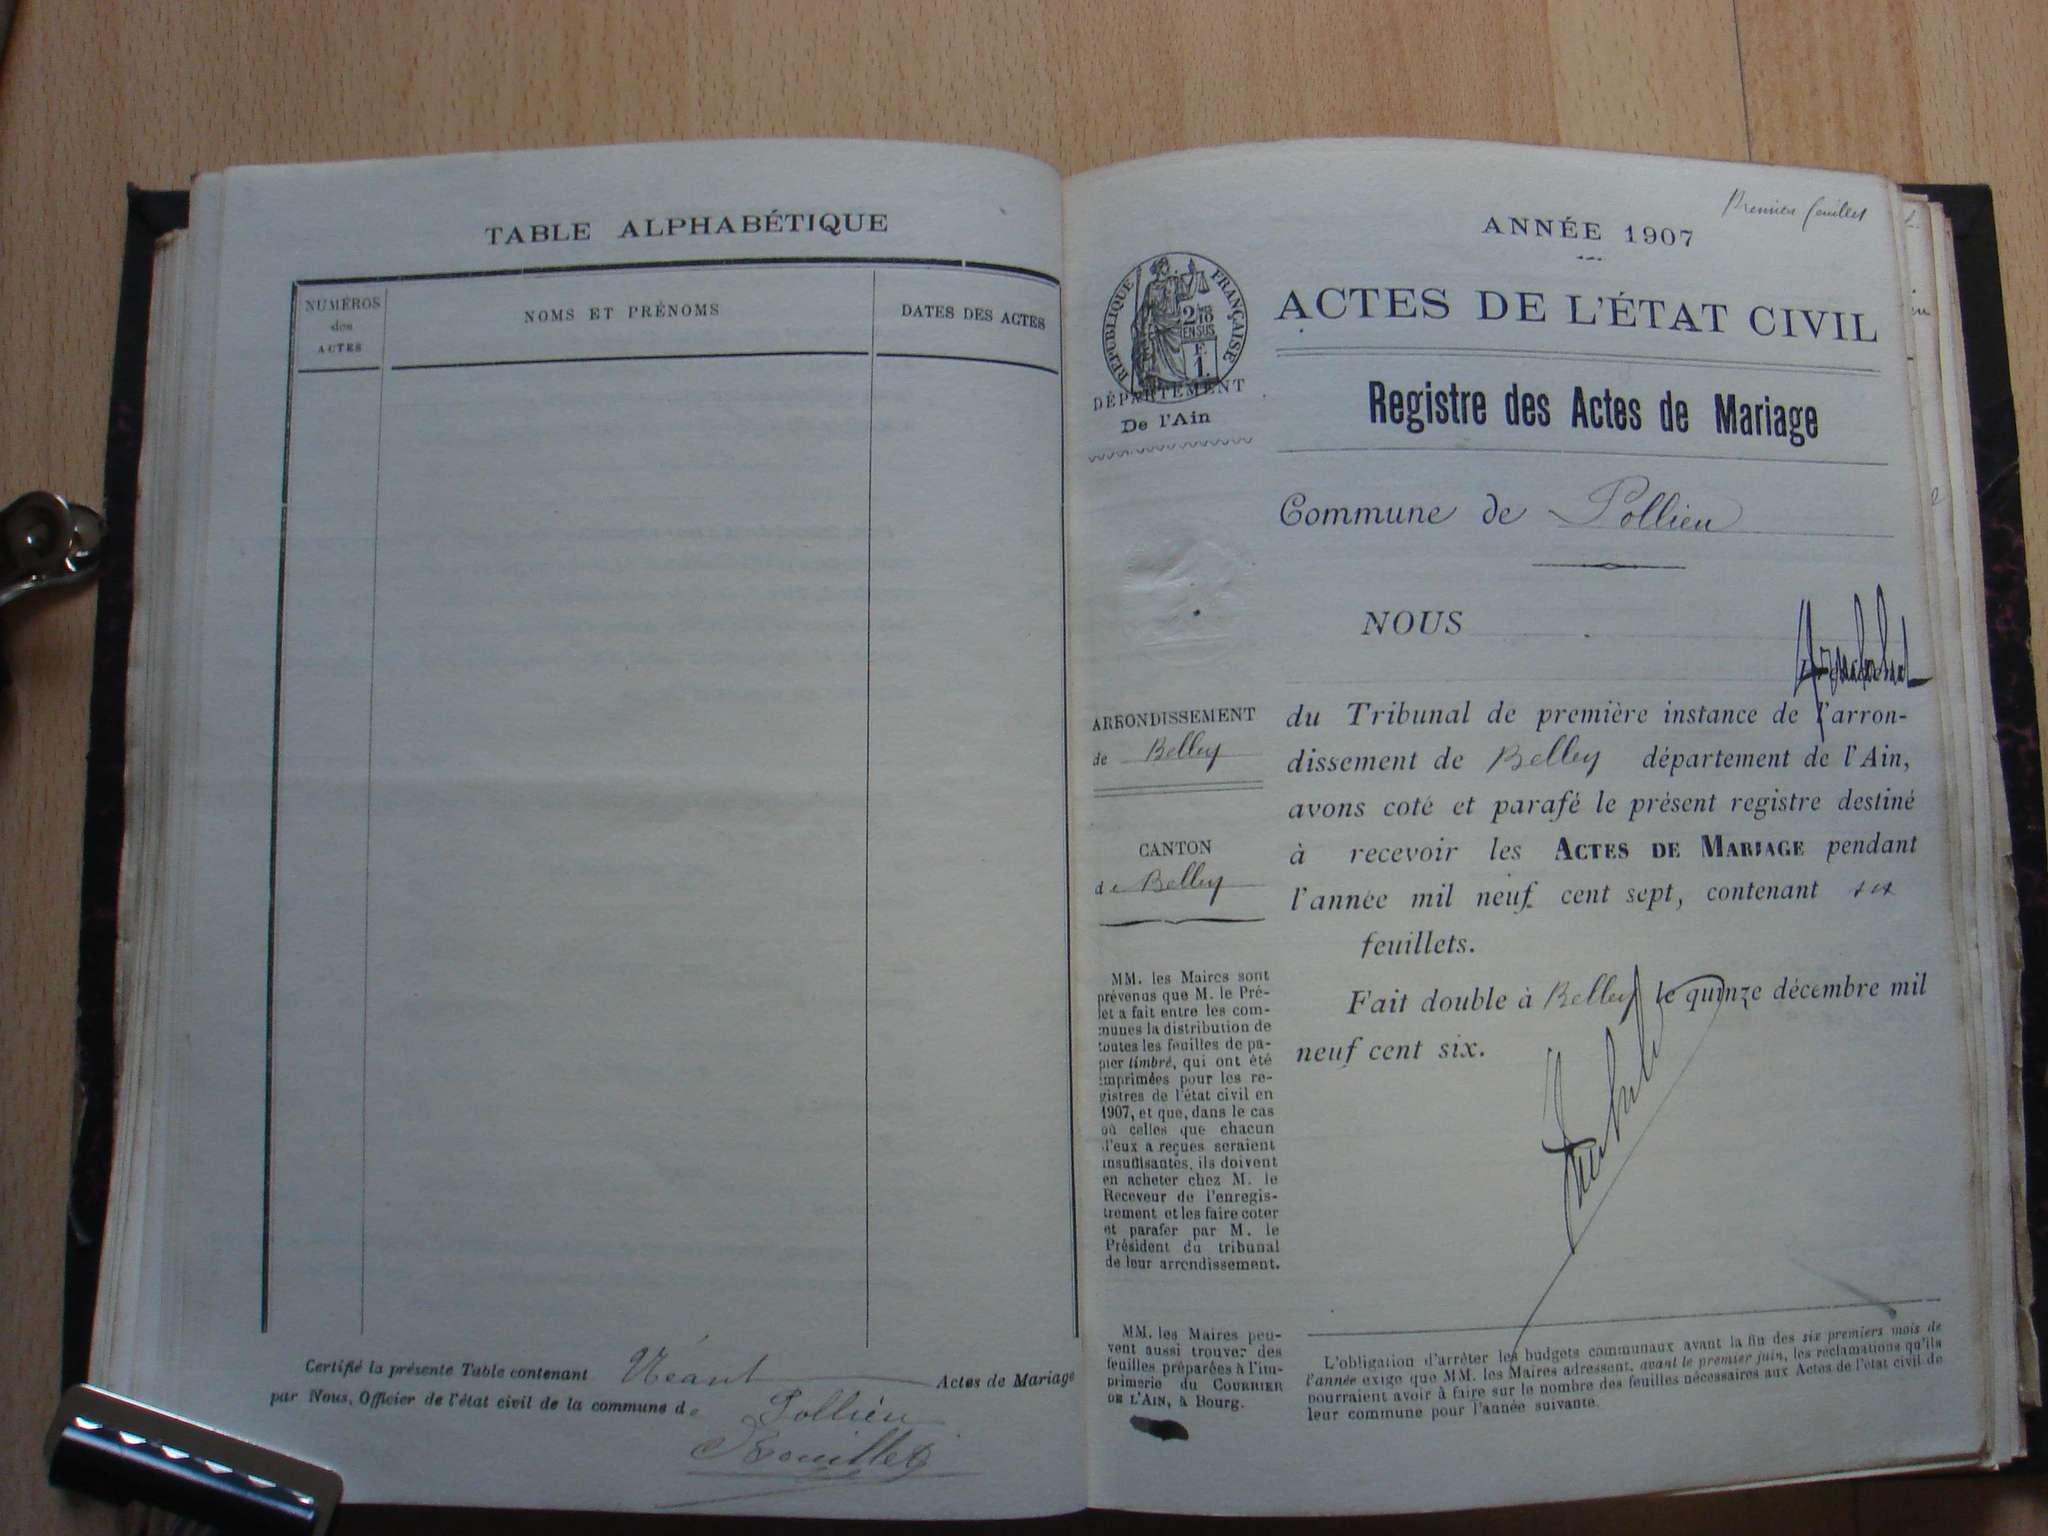 TABLE ALPHABÉTIQUE
NUMÉROS
des
ACTES
NOMS ET PRÉNOMS
DATES DES ACTES
Certifié la présente Table contenant Néant Actes de Mariage
par Nous, Officier de l'état civil de la commune de Pollieu
Premier feuillet
ANNÉE 1907
RÉPUBLIQUE FRANÇAISE
2 DES 10
EN SUS
F.
1.
DÉPARTEMENT
De l'Ain
ACTES DE L'ÉTAT CIVIL
Registre des Actes de Mariage
Commune de Pollieu
NOUS
du Tribunal de première instance de l'arron-
dissement de Belley département de l'Ain,
avons coté et parafé le présent registre destiné
à recevoir les ACTES DE MARIAGE pendant
l'année mil neuf cent sept, contenant six
feuillets.
Fait double à Belley le quinze décembre mil
neuf cent six.
ARRONDISSEMENT
de Belley
CANTON
de Belley
MM. les Maires sont
prévenus que M. le Pré-
fet a fait entre les com-
munes la distribution de
toutes les feuilles de pa-
pier timbré, qui ont été
imprimées pour les re-
gistres de l'état civil en
1907, et que, dans le cas
où celles que chacun
d'eux a reçues seraient
insuffisantes, ils doivent
en acheter chez M. le
Receveur de l'enregis-
trement et les faire coter
et parafer par M. le
Président du tribunal
de leur arrondissement.
MM. les Maires peu-
vent aussi trouver des
feuilles préparées à l'im-
primerie du COURRIER
DE L'AIN, à Bourg.
L'obligation d'arrêter les budgets communaux avant la fin des six premiers mois de
l'année exige que MM. les Maires adressent, avant le premier juin, les réclamations qu'ils
pourraient avoir à faire sur le nombre des feuilles nécessaires aux Actes de l'état civil de
leur commune pour l'année suivante.